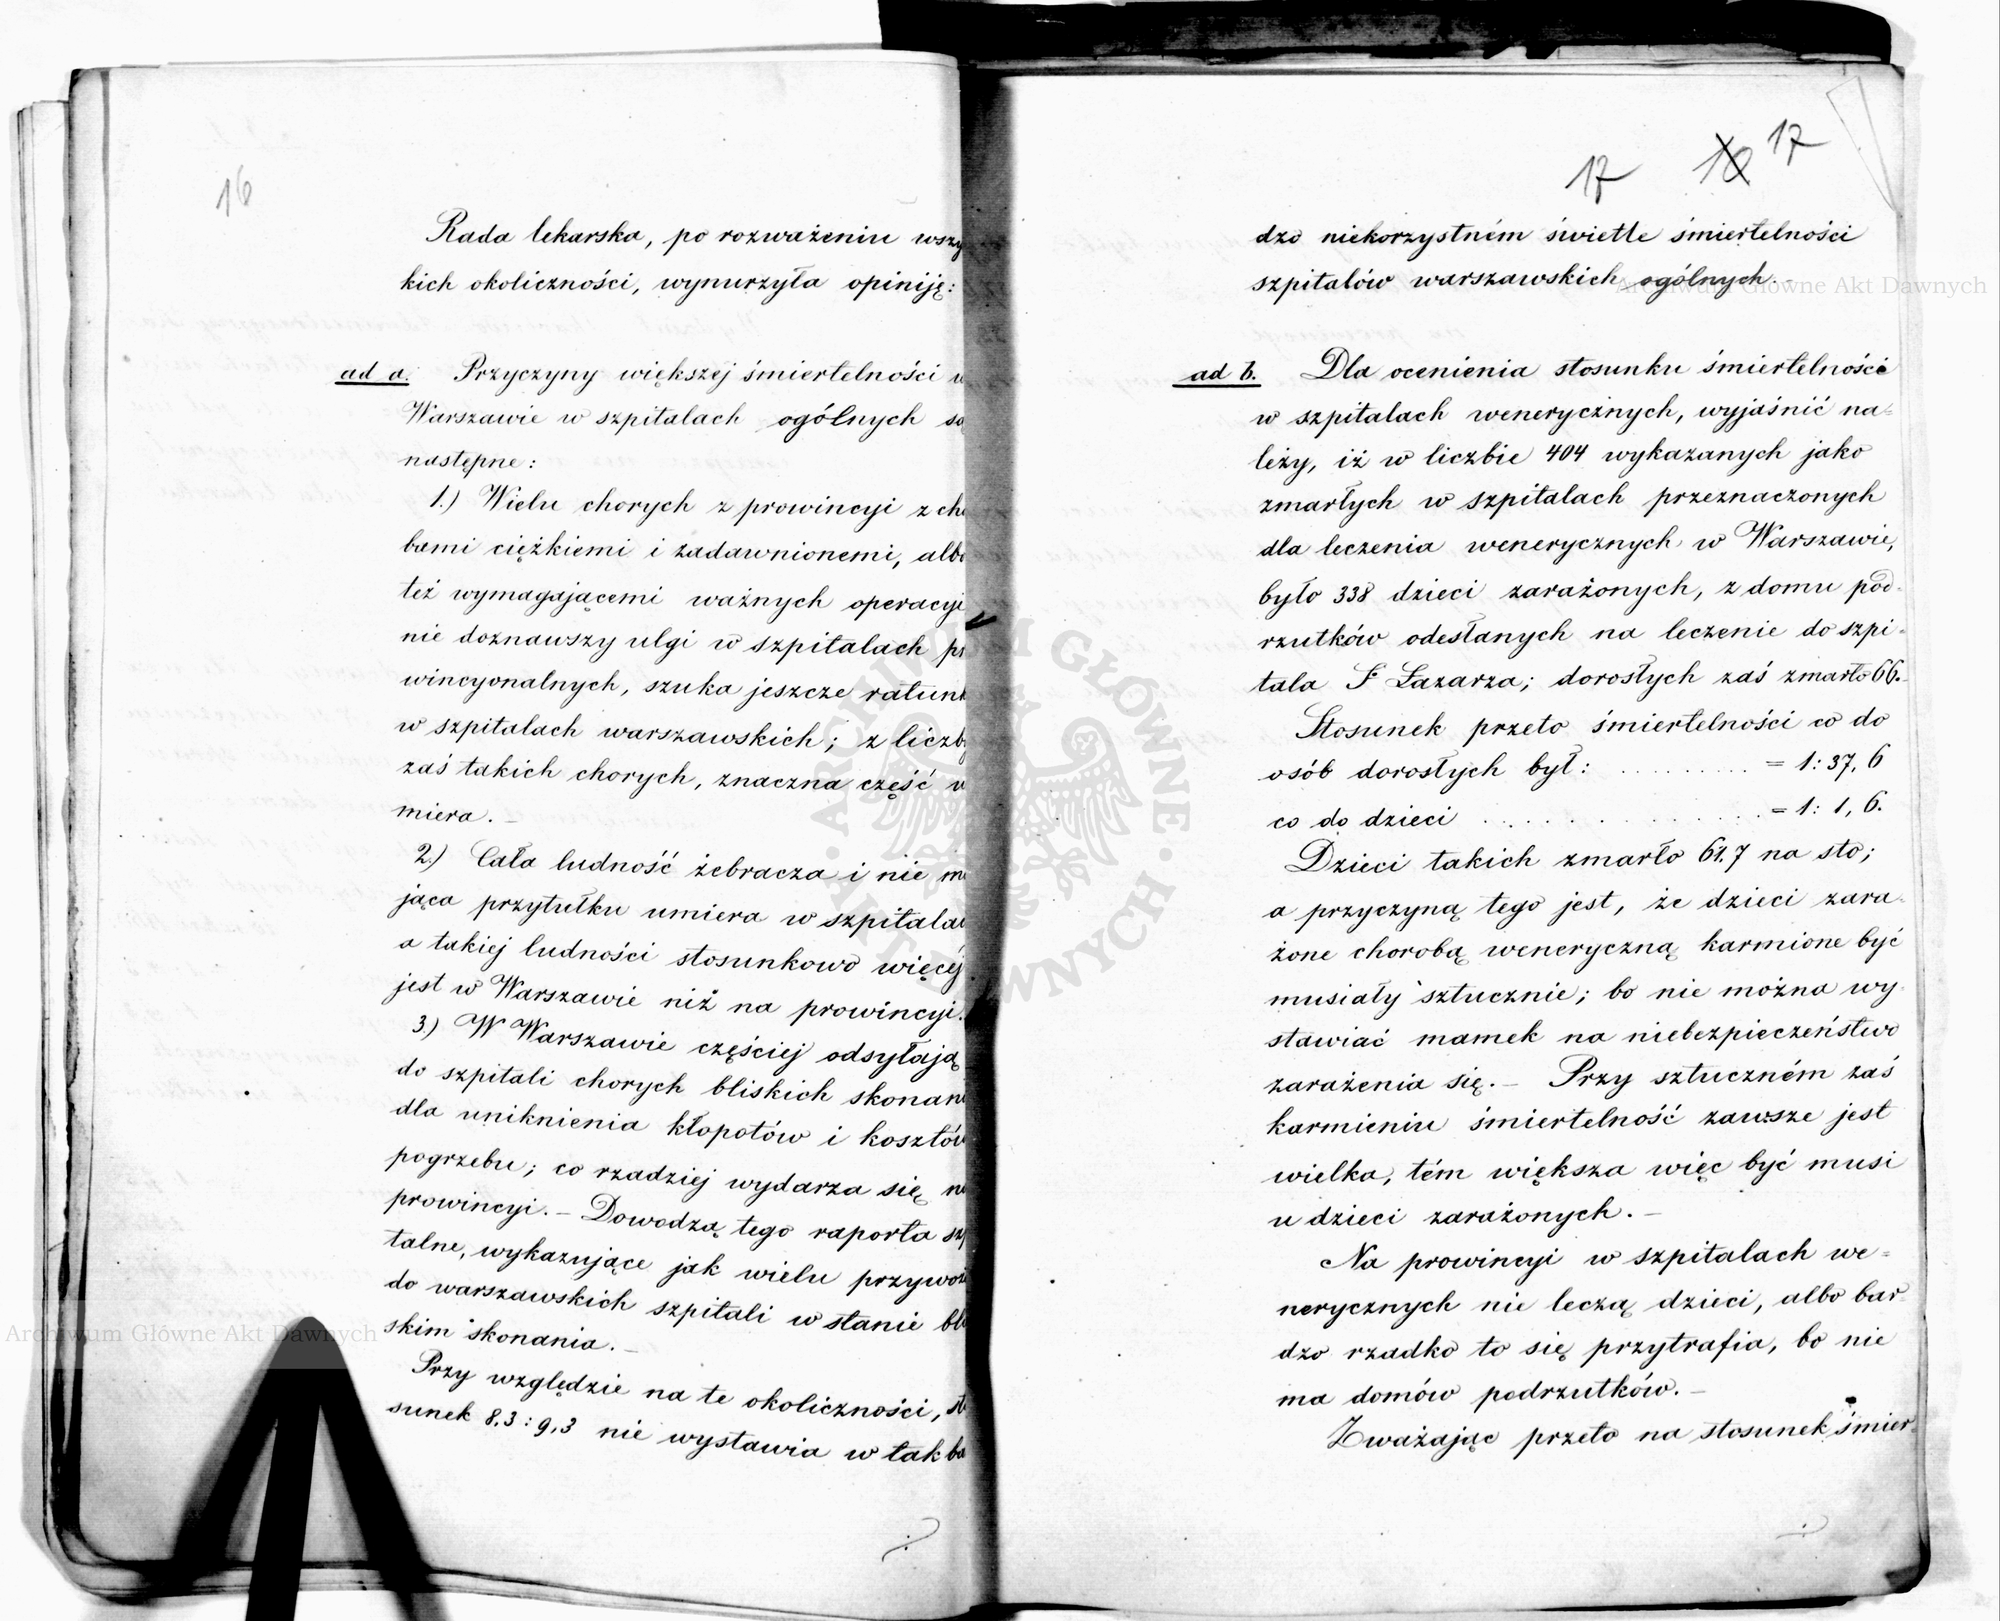 16
Rada lekarska, po rozważeniu wszy
kich okoliczności, wynurzyła opiniję:
ad a. Przyczyny większej śmiertelności w
Warszawie w szpitalach ogólnych są
następne:
1.) Wielu chorych z prowincyi z cho
bami ciężkiemi i zadawnionemi, albo
też wymagającemi ważnych operacyi
nie doznawszy ulgi w szpitalach pr
wincyonalnych, szuka jeszcze ratunk
w szpitalach warszawskich; z liczby
zaś takich chorych, znaczna część u
miera. –
2.) Cała ludność żebracza i nie ma
jąca przytułku umiera w szpitalac
a takiej ludności stosunkowo więcej
jest w Warszawie niż na prowincyi.
3.) W Warszawie częściej odsyłają
do szpitali chorych bliskich skonani
dla uniknienia kłopotów i kosztów
pogrzebu; co rzadziej wydarza się na
prowincyi. – Dowodzą tego raporta szp
talne, wykazujące jak wielu przywożo
do warszawskich szpitali w stanie bli
skim skonania. –
Przy względzie na te okoliczności, sto
sunek 8.3 : 9,3 nie wystawia w tak ba
17 16 17
dzo niekorzystném świetle śmiertelności
szpitalów warszawskich ogólnych.
ad b. Dla ocenienia stosunku śmiertelności
w szpitalach wenerycznych, wyjaśnić na-
leży, iż w liczbie 404 wykazanych jako
zmarłych w szpitalach przeznaczonych
dla leczenia wenerycznych w Warszawie,
było 338 dzieci zarażonych, z domu pod-
rzutków odesłanych na leczenie do szpi-
tala Ś Łazarza; dorosłych zaś zmarło 66.
Stosunek przeto śmiertelności co do
osób dorosłych był: . . . . . . . . . = 1: 37, 6
co do dzieci . . . . . . . . . . . . . . = 1: 1, 6.
Dzieci takich zmarło 61.7 na sto;
a przyczyną tego jest, że dzieci zara-
żone chorobą weneryczną karmione być
musiały sztucznie; bo nie można wy-
stawiać mamek na niebezpieczeństwo
zarażenia się. – Przy sztuczném zaś
karmieniu śmiertelność zawsze jest
wielka, tém większa więc być musi
u dzieci zarażonych. –
Na prowincyi w szpitalach we-
nerycznych nie leczą dzieci, albo bar-
dzo rzadko to się przytrafia, bo nie
ma domów podrzutków. –
Zważając przeto na stosunek śmier-
Archiwum Główne Akt Dawnych
Archiwum Główne Akt Dawnych
ARCHIWUM GŁÓWNE · AKT DAWNYCH ·